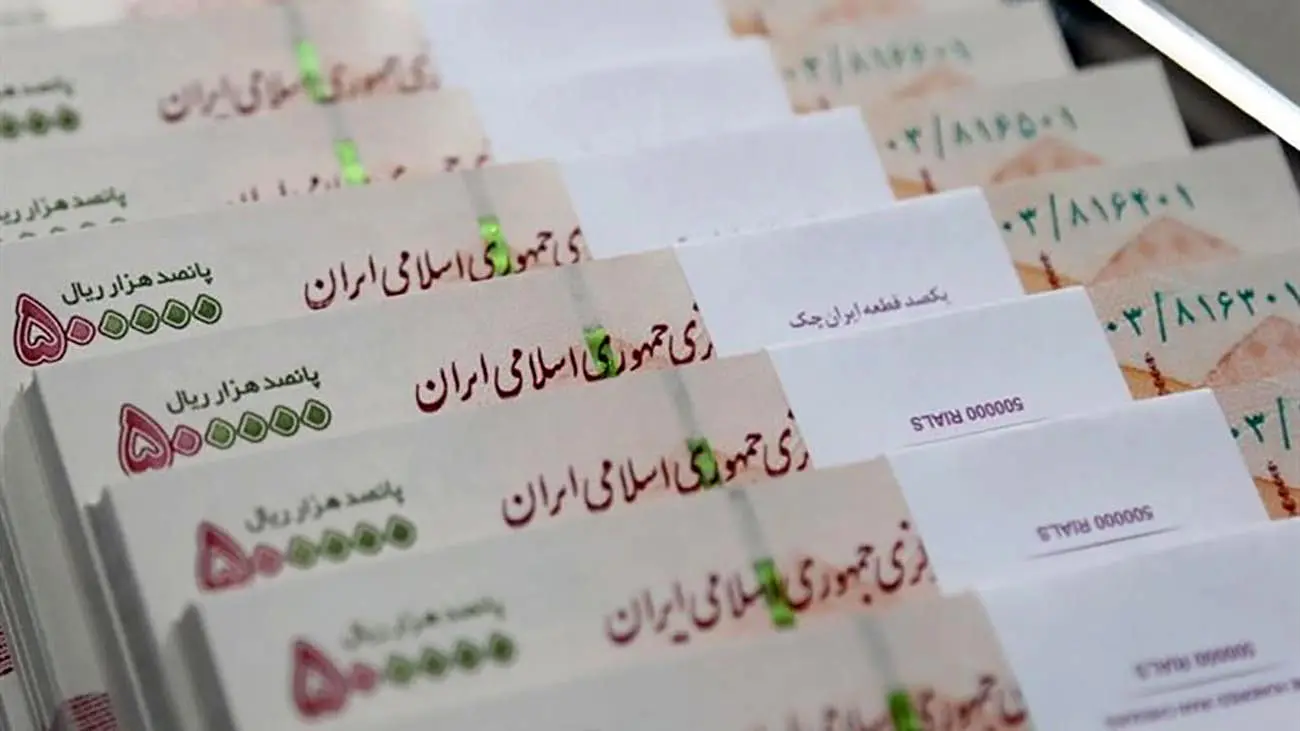 جمهوری اسلامی ایران
پانصد هزار
۰۳/۸۱۶۶۰۱
پانصد هزار ریال
۰۳/۸۱۶۵۰۱
جمهوری اسلامی ایران
پانصد هزار ریال
۵۰۰۰۰۰
۰۳/۸۱۶۴۰۱
یکصد قطعه ایران چک
زی جمهوری اسلامی ایران
پانصد هزار ریال
۵۰۰۰۰۰
۰۳/۸۱۶۳۰۱
500000 RIALS
زی جمهوری اسلامی ایران
پانصد هزار ریال
۵۰۰۰۰۰
۰۳/
500000 RIALS
کزی جمهوری اسلامی ایران
پانصد هزار ریال
۵۰۰۰۰۰
500000 RIALS
جمهوری